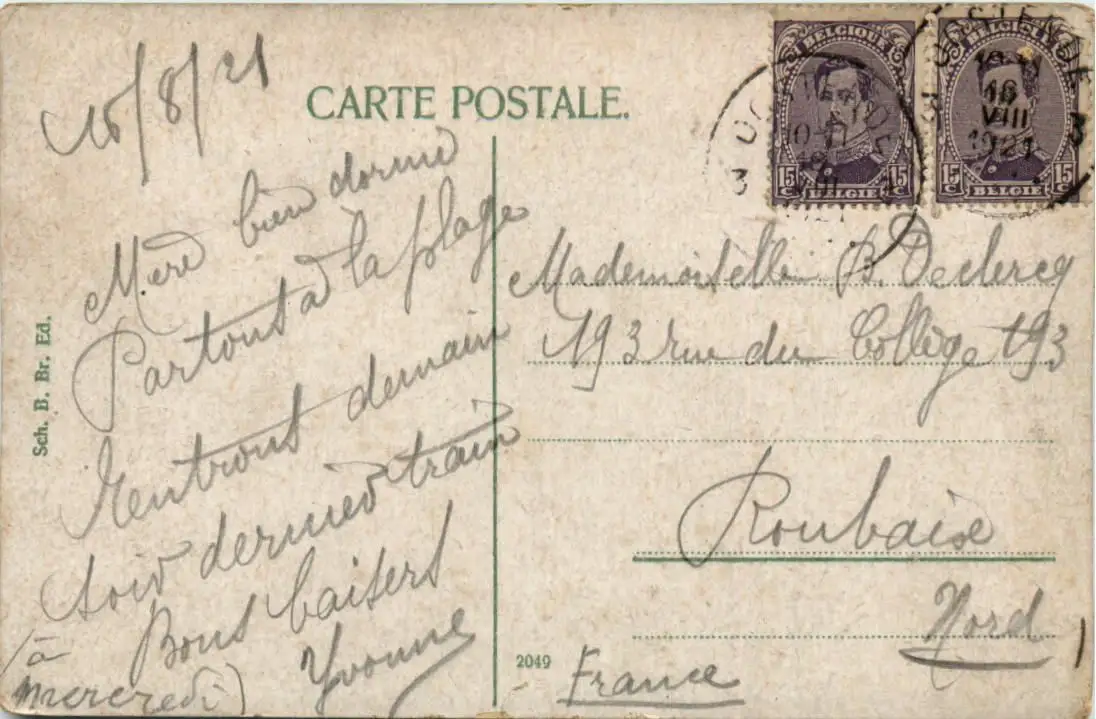 16/8/21
CARTE POSTALE.
Mère bien dormi
Partons à la plage
Rentrons demain
soir dernier train
Bons baisers
Yvonne
à
mercredi)
Sch. B. Br. Ed.
BELGIQUE
15 C
BELGIE
15 C
BELGIQUE
15 C
BELGIE
15 C
3 OOSTENDE 3
16
VIII
1921
3 OOSTENDE
VIII
Mademoiselle B. Declercq
193 rue du Collège 193
Roubaix
Nord
2049
France